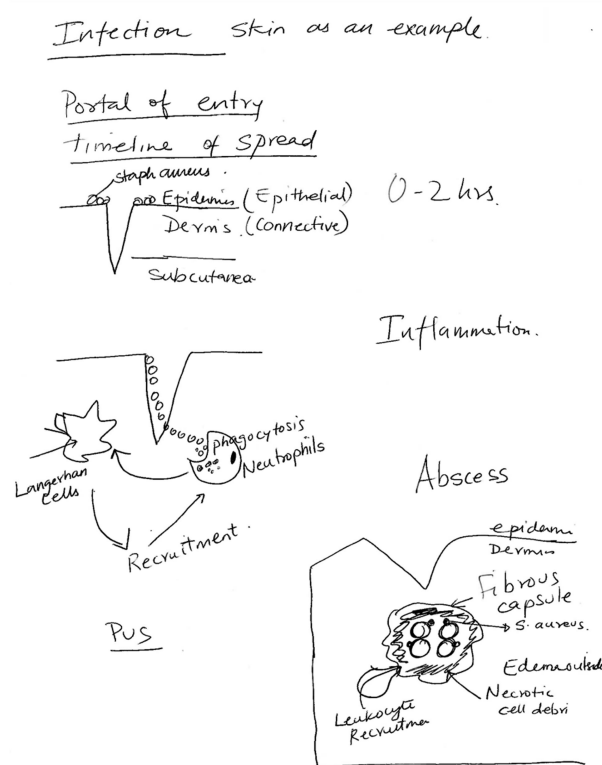 Infection skin as an example.
Portal of entry
timeline of spread
staph aureus.
Epidermis (Epithelial)
0-2 hrs.
Dermis. (Connective)
Subcutanea
Inflammation.
phagocytosis
Neutrophils
Langerhan
cells
Recruitment.
Abscess
epidermi
Dermis
Fibrous
capsule
S. aureus.
Pus
Edema outside
Necrotic
cell debri
Leukocyte
Recruitmen